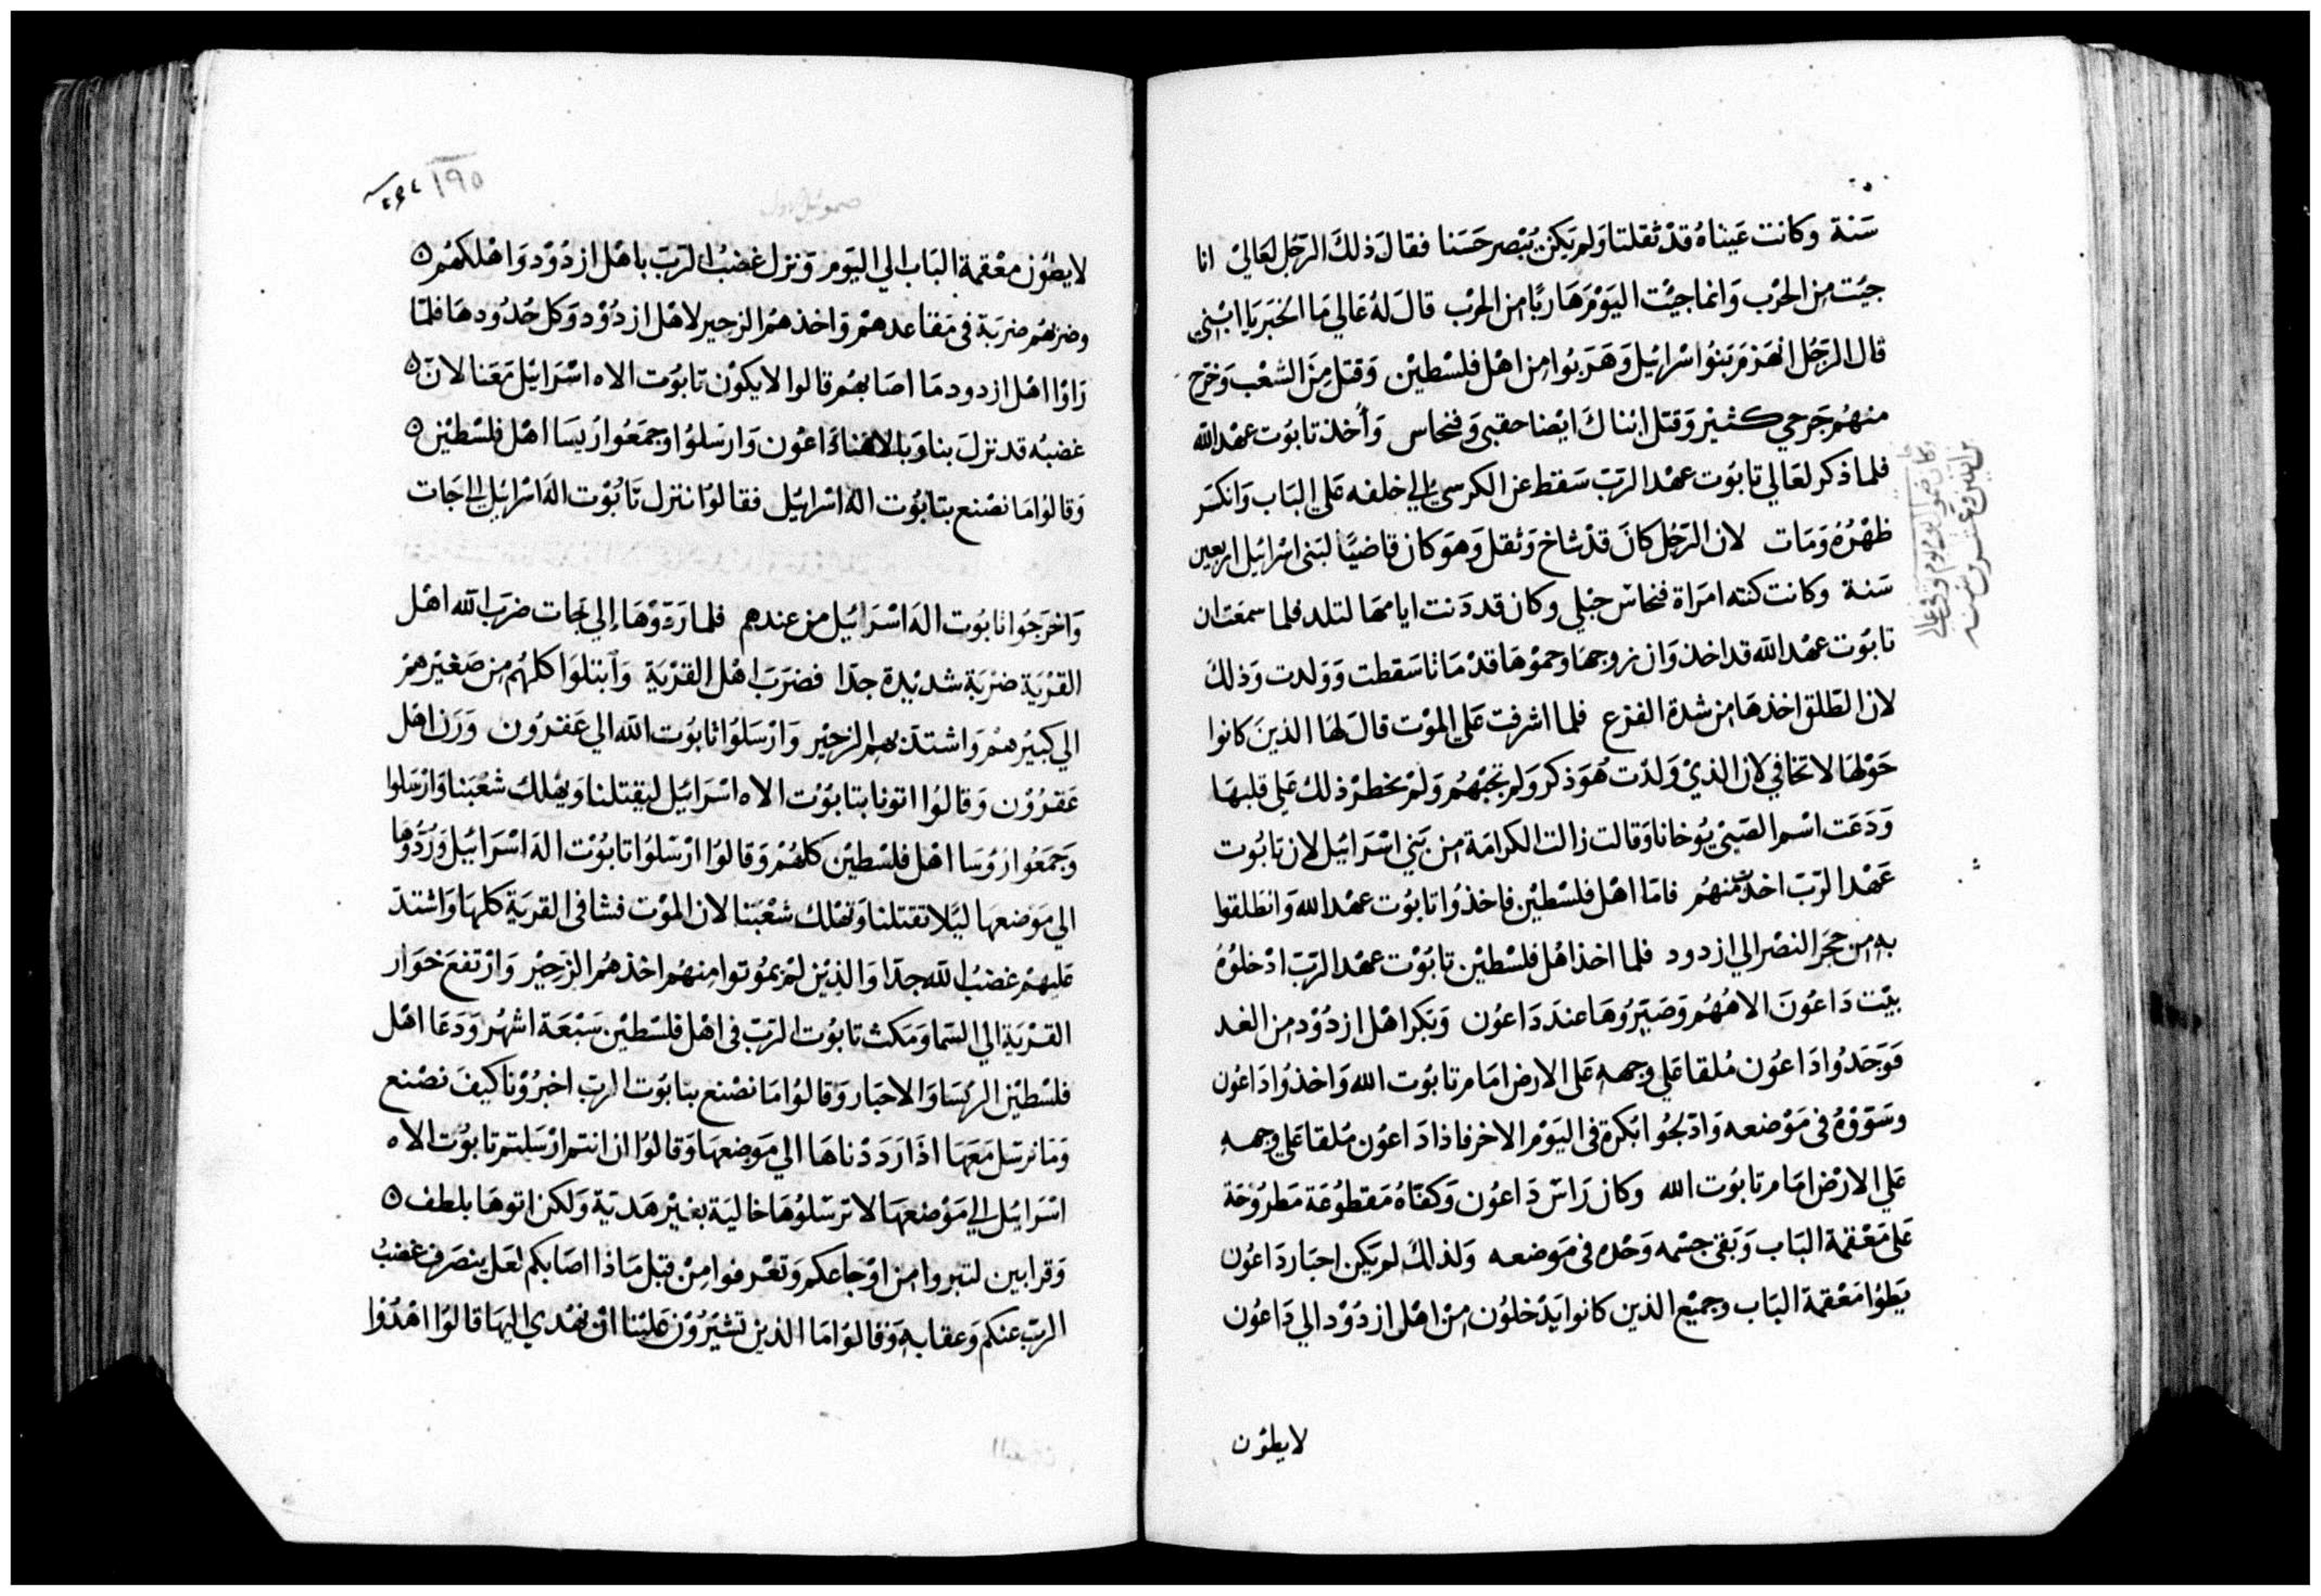 سَنة وكانت عَيناهُ قدْ ثقلتا وَلم يَكن يُبْصر حَسَنا فقالَ ذلكَ الرّجُل لعَاليْ انا
جيُت مِن الحَرْب وَانما جيُت اليَوْمَ هَاربًا من الحرْب قالَ لهُ عَالي مَا الخبَر يَا ابْني
قال الرّجُل انهَزمَ بَنوُا اسْرائيل وَهَرَبُوا من اهْل فلسْطيْن وَقتل مِنَ الشعْب وَخرج
منهُم جَرحي كثيْر وَقتل ابْناكَ ايْضا حقبي وَفنحاس وَأخذ تابوُت عهْد الله
فلما ذكر لعَالي تابوُت عهْد الربّ سَقط عن الكرسي الي خلفه عَلي البَاب وَانكسَر
ظهْرُهُ وَمَات لان الرّجُل كانَ قدْ شاخ وَثقل وَهوَ كان قاضيًا لبَني اسْرائيل اربعين
سَنة وكانت كنته امرَاة فنحاسْ حبْلي وكان قد دَنت ايامهَا لتلد فلما سمعَت ان
تابوُت عهْد الله قد اخذ وَان زوجهَا وحموْهَا قدْ مَاتا سَقطت وَوَلدت وَذلك
لان الطّلق اخذهَا من شدة الفزع فلما اشرفت عَلي الموْت قالَ لهَا الذينَ كانوا
حَوْلها لا تخافي لان الذيْ وَلدْت هُوَ ذكر وَلم تجبْهُم وَلمْ يخطرْ ذلك عَلي قلبهَا
وَدَعَت اسْم الصَبيْ يُوخانا وَقالت زالت الكرامَة من بَني اسْرَائيل لان تابُوت
عَهْد الرّبّ اخذت منهُم فامّا اهْل فلسْطيْن فاخذوُا تابوُت عهْد الله وَانطلقوا
به من حجَر النصْر الي ازدود فلما اخذ اهْل فلسْطيْن تابوُت عهْد الرّبّ ادْخلوْهُ
بيْت دَاعُونَ الاههُم وَصَيّرُوهَا عندَ دَاعوُن وَبكر اهْل ازدُوْد من الغد
فوَجَدُوا دَاعُون مُلقا عَلي وجهه عَلي الارض امَام تابوُت الله وَاخذوُا دَاعُون
وسَوّوْهُ في مَوْضعه وَادْلجُوا بكرة في اليَوْم الاخر فاذا دَاعُون مُلقا عَلي وجهه
عَلي الارْض امَام تابوُت الله وكان رَاسْ دَاعوُن وَكفاهُ مَقطوُعَة مَطروُحَة
عَلي مَعْقمة البَاب وَبَقي جسْمه وَحْده في مَوضعه وَلذلكْ لم يَكن احبَار دَاعُون
يَطوْا مَعْقمة البَاب وجميْع الذين كانوا يَدْخلوُن مِنْ اهْل ازدوُدْ الي دَاعُون
لا يطوْن
١٩٥
صموئيل اول
لا يطوُن معْقمة البَاب الي اليَوم وَنزل غضبُ الرّبّ باهْل ازدُوْد وَاهْلكهُم ٥
وضربهُم ضربَة في مَقاعدهمْ وَاخذهمُ الزحير لاهْل ازدُوْد وَكل حُدُودهَا فلمّا
رَاوْا اهْل ازدود مَا اصَابهُم قالوا لا يكوْن تابوُت الاه اسْرَائيْل مَعَنا لانّ ٥
غضبُه قد نزلَ بنا وَبالاهُنا دَاعوُن وَارسَلوُا وجمَعُوا رُيسَا اهْل فلسْطيْن ٥
وَقالوُا مَا نصْنع بتابوُت اله اسْرائيْل فقالوُا ننزل تابُوْت الهَ اسْرائيْل الي جَات
وَاخرَجَوُا تابوُت الهَ اسْرَائيْل من عندهم فلما رَدّوْهَا إلي جَات ضرَبَ الله اهْل
القرْيَة ضرْبَة شديْدة جدّا فضرَبَ اهْل القرْيَة وَابْتلوَا كلهُم مِن صَغيْرهمْ
الي كبيْرهمْ وَاشتدّ بهم الزحيْر وَارْسَلوُا تابوُت الله الي عَقرُون وَرَن اهْل
عَقرُوْن وَقالوُا اتونا بتابوُت الاه اسْرَائيْل ليَقتلنا وَيهْلك شعْبَنا وَارْسَلوا
وَجمَعُوا رُوْسَا اهْل فلسْطيْن كلهُمْ وَقالوُا ارْسَلوُا تابوُت الهَ اسْرَائيْل وَرُدُّوْهَا
الي مَوضعهَا ليَلا تقتلنا وَتهْلك شعْبَنا لان الموْت فشا في القريَة كلهَا وَاشتدّ
عَليهمْ غضبُ الله جدّا وَالذيْن لمْ يموُتوا منهُم اخذهُم الزّحيْر وَارْتفعَ خوَار
القرْيَة الي السّما وَمَكث تابوُت الربّ في اهْل فلسْطيْن سَبْعَة اشهُر وَدَعَا اهْل
فلسْطيْن الرئسَا وَالاحبَار وَقالوُا مَا نصْنع بتابوُت الرب اخبرُوْنا كيفَ نصْنع
وَمَا نرسَل مَعَهَا اذَا رَدَدْناهَا الي مَوضعهَا وَقالوُا ان انتم ارْسَلتم تابوُت الاه
اسْرَائيْل الي مَوْضعهَا لا ترسَلوُهَا خاليَة بغيْر هَديّة وَلكن اتوهَا بلطف ٥
وَقرابين لتبروا من اوْجَاعكم وَتعْرفوا مِنْ قبل مَاذا اصَابكم لعَل ينصَرف غضبُ
الربّ عنكم وَعقابه وَقالوُا مَا الذيْ تشيْرُوْن عَليْنا انْ نهْدي اليهَا قالوُا اهْدُوْا